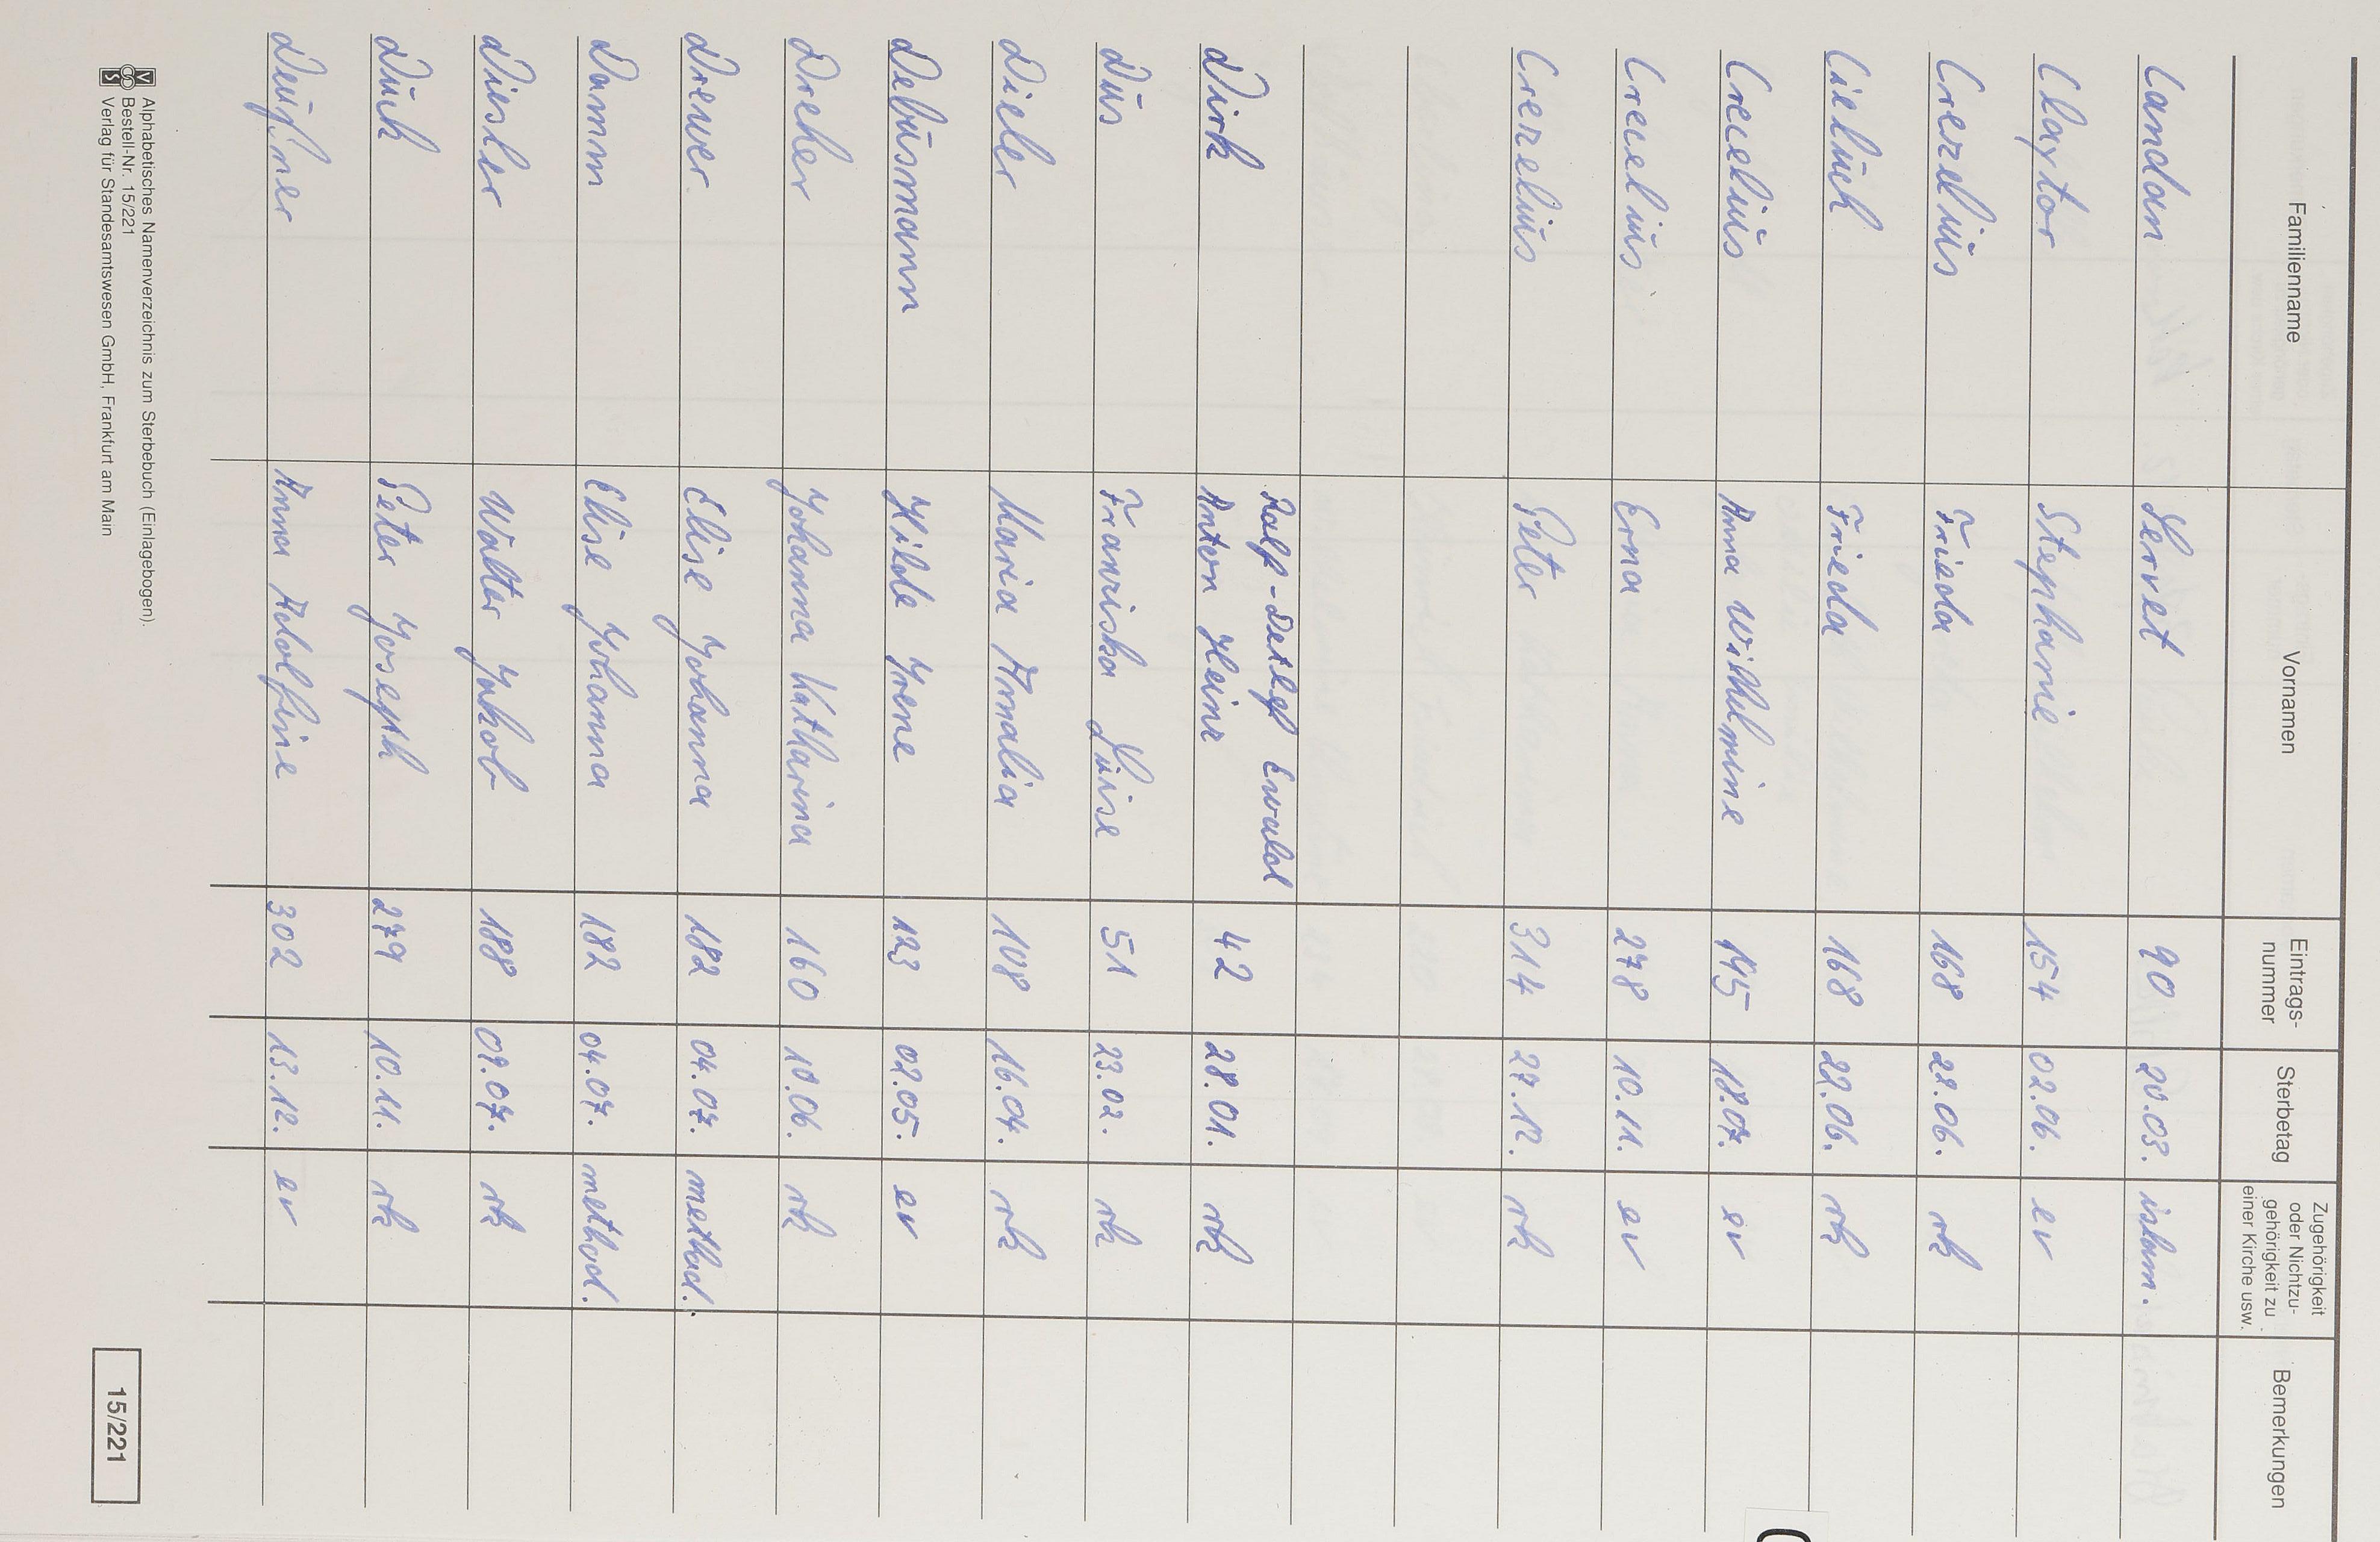 Familienname Vornamen Eintrags-nummer Sterbetag Zugehörigkeit oder Nichtzu-gehörigkeit zu einer Kirche usw. Bemerkungen
Candan Servet 90 20.03. islam.
Claytor Stephanie 154 02.06. ev
Crezelius Frieda 168 22.06. rk
Cieluch Frieda 168 22.06. rk
Crecelius Anna Wilhelmine 195 18.07. ev
Crecelius Erna 278 10.11. ev
Crezelius Peter 314 27.12. rk
Ralf-Detlef Ewald
Dirk Anton Heinz 42 28.01. rk
Dus Franziska Luise 51 23.02. rk
Dieler Maria Amalia 108 16.04. rk
Debusmann Hilde Irene 123 02.05. ev
Dreher Johanna Katharina 160 10.06. rk
Drewer Elise Johanna 182 04.07. method.
Damm Elise Johanna 182 04.07. method.
Disler Walter Jakob 188 09.07. rk
Duch Peter Joseph 279 10.11. rk
Anna Adolfine 302 13.12. ev
Alphabetisches Namenverzeichnis zum Sterbebuch (Einlagebogen).
Bestell-Nr. 15/221
Verlag für Standesamtswesen GmbH, Frankfurt am Main
15/221